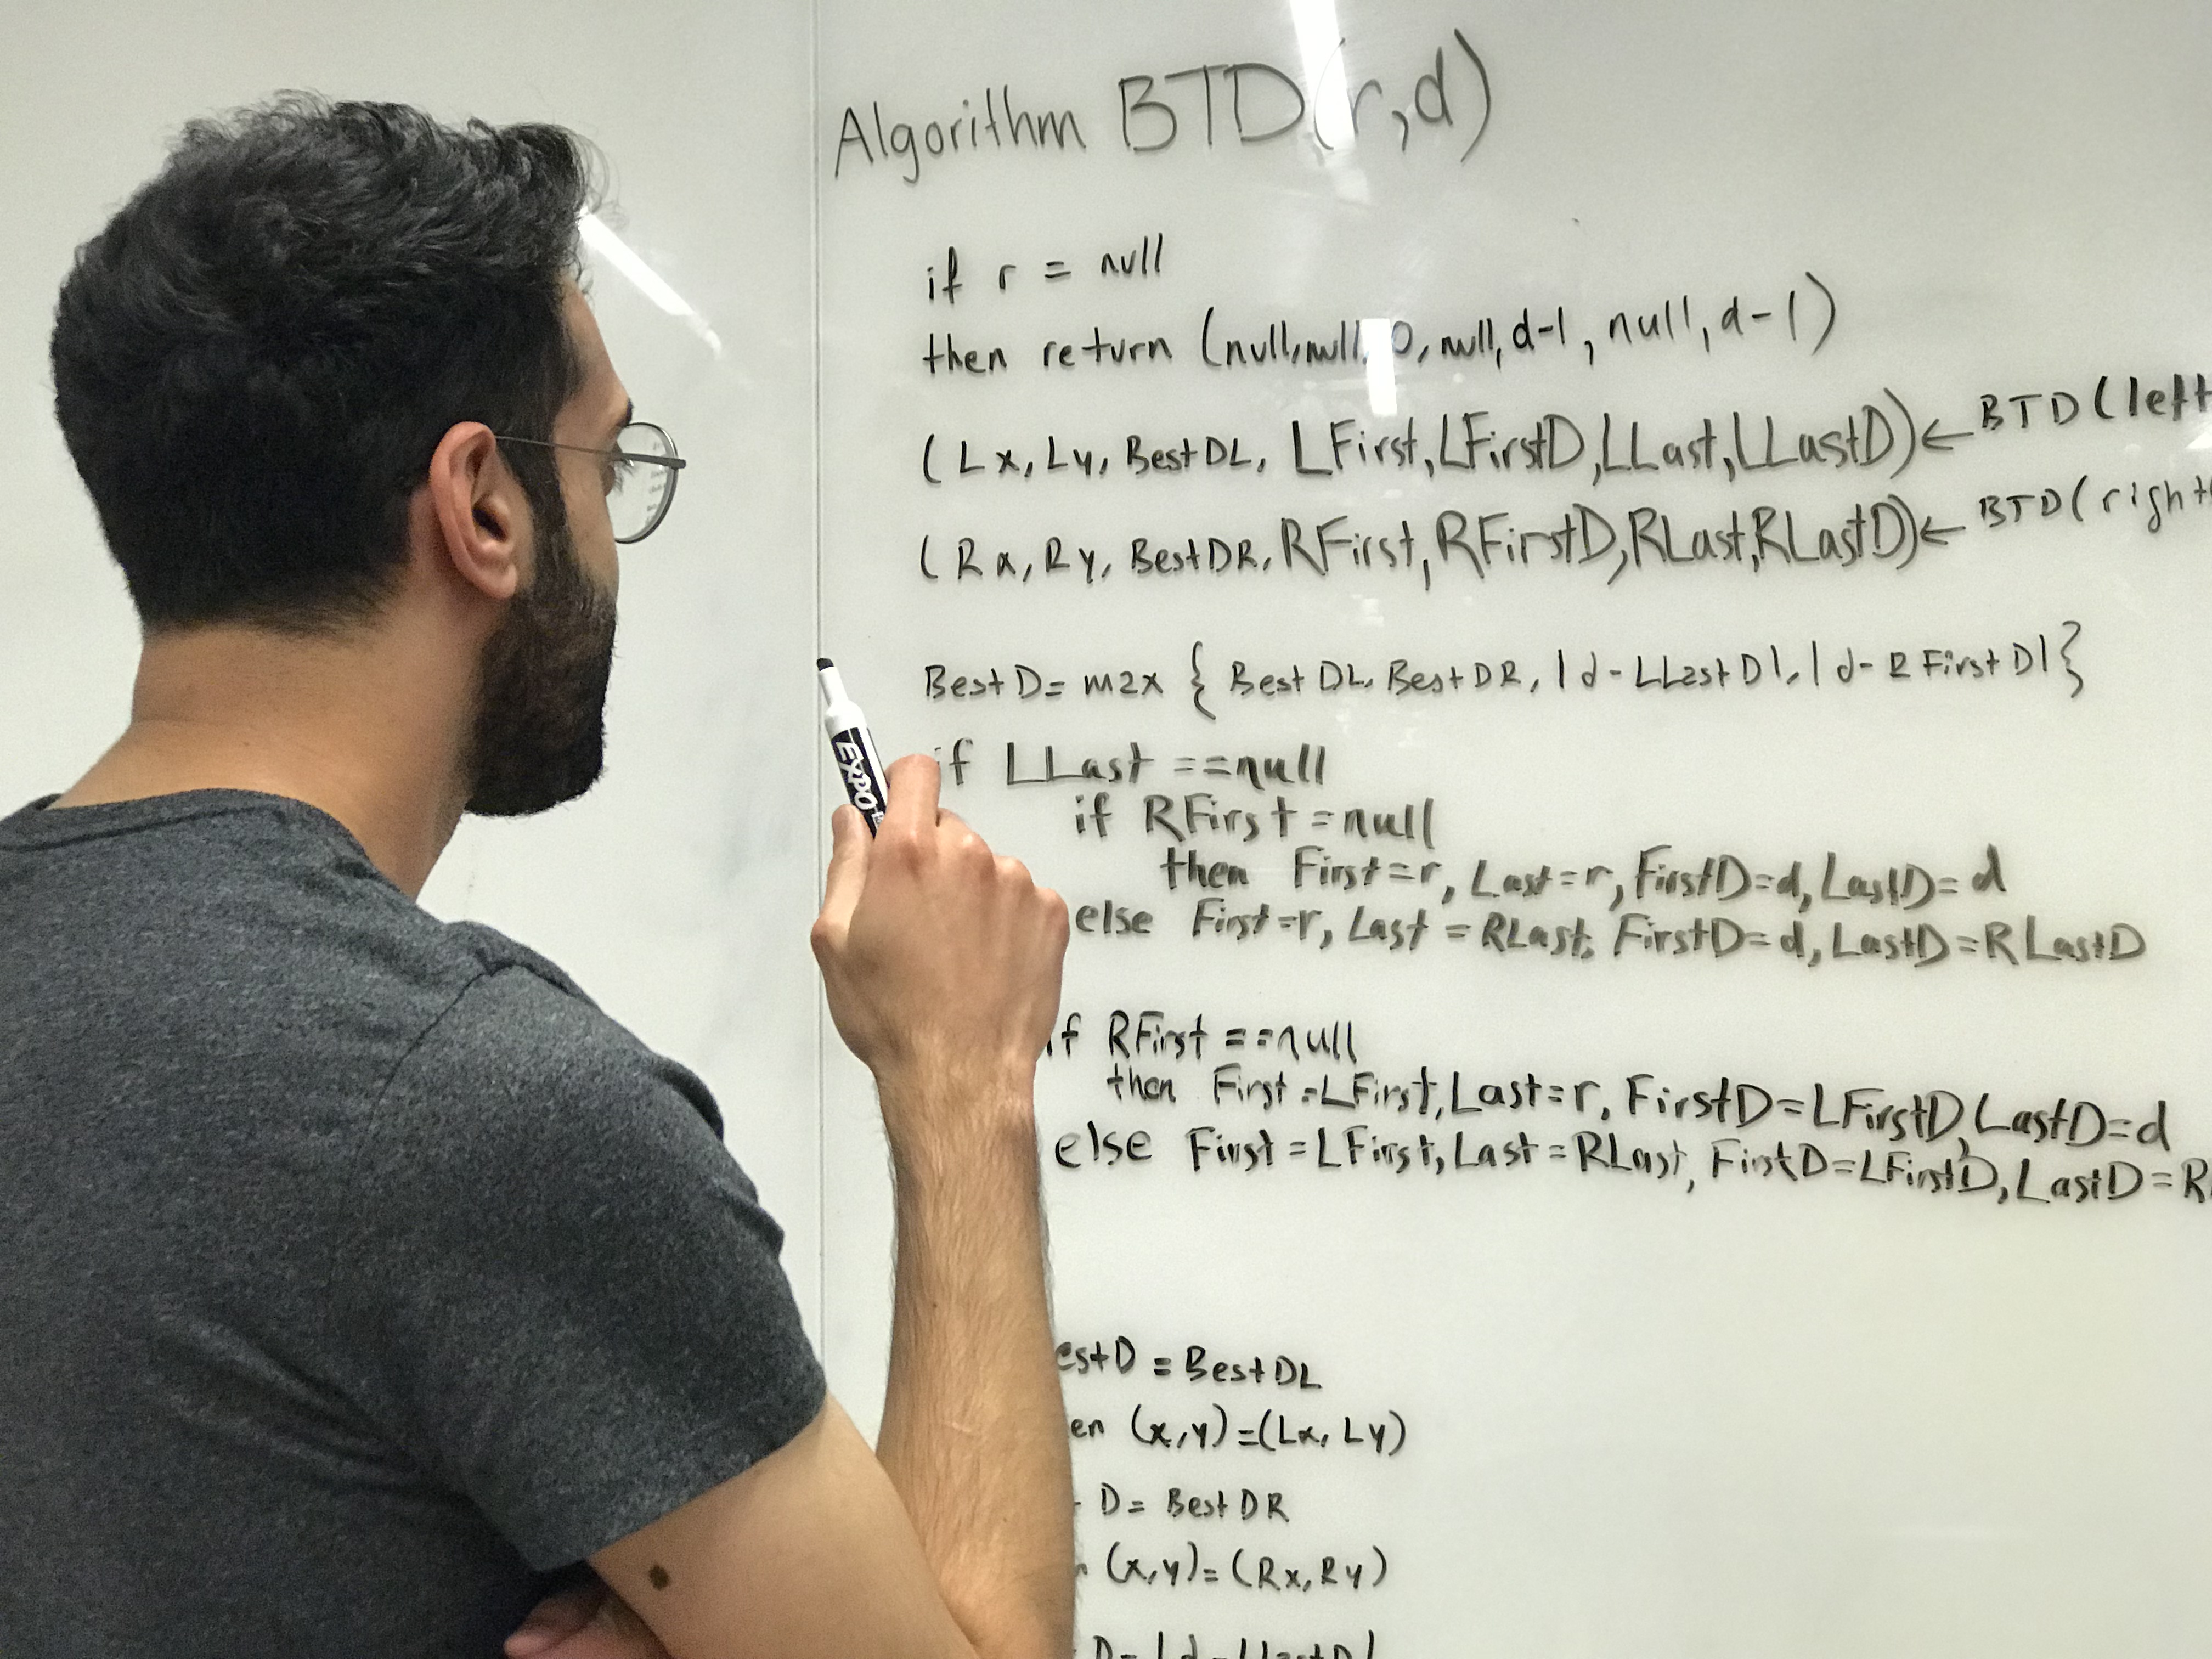 Algorithm BTD(r,d)
if r = null
then return (null,null, 0, null, d-1, null, d-1)
(Lx, Ly, BestDL, LFirst, LFirstD, LLast, LLastD) ← BTD(left
(Rx, Ry, BestDR, RFirst, RFirstD, RLast, RLastD) ← BTD(right
BestD= max { BestDL, BestDR, |d-LLastD|, |d-RFirstD| }
if LLast ==null
if RFirst =null
then First=r, Last=r, FirstD=d, LastD= d
else First=r, Last = RLast, FirstD=d, LastD=RLastD
EXPO
if RFirst ==null
then First=LFirst, Last=r, FirstD=LFirstD, LastD=d
else First=LFirst, Last=RLast, FirstD=LFirstD, LastD=R
estD = BestDL
en (x,y)=(Lx, Ly)
D= BestDR
(x,y)=(Rx,Ry)
D=|d-LLastD|